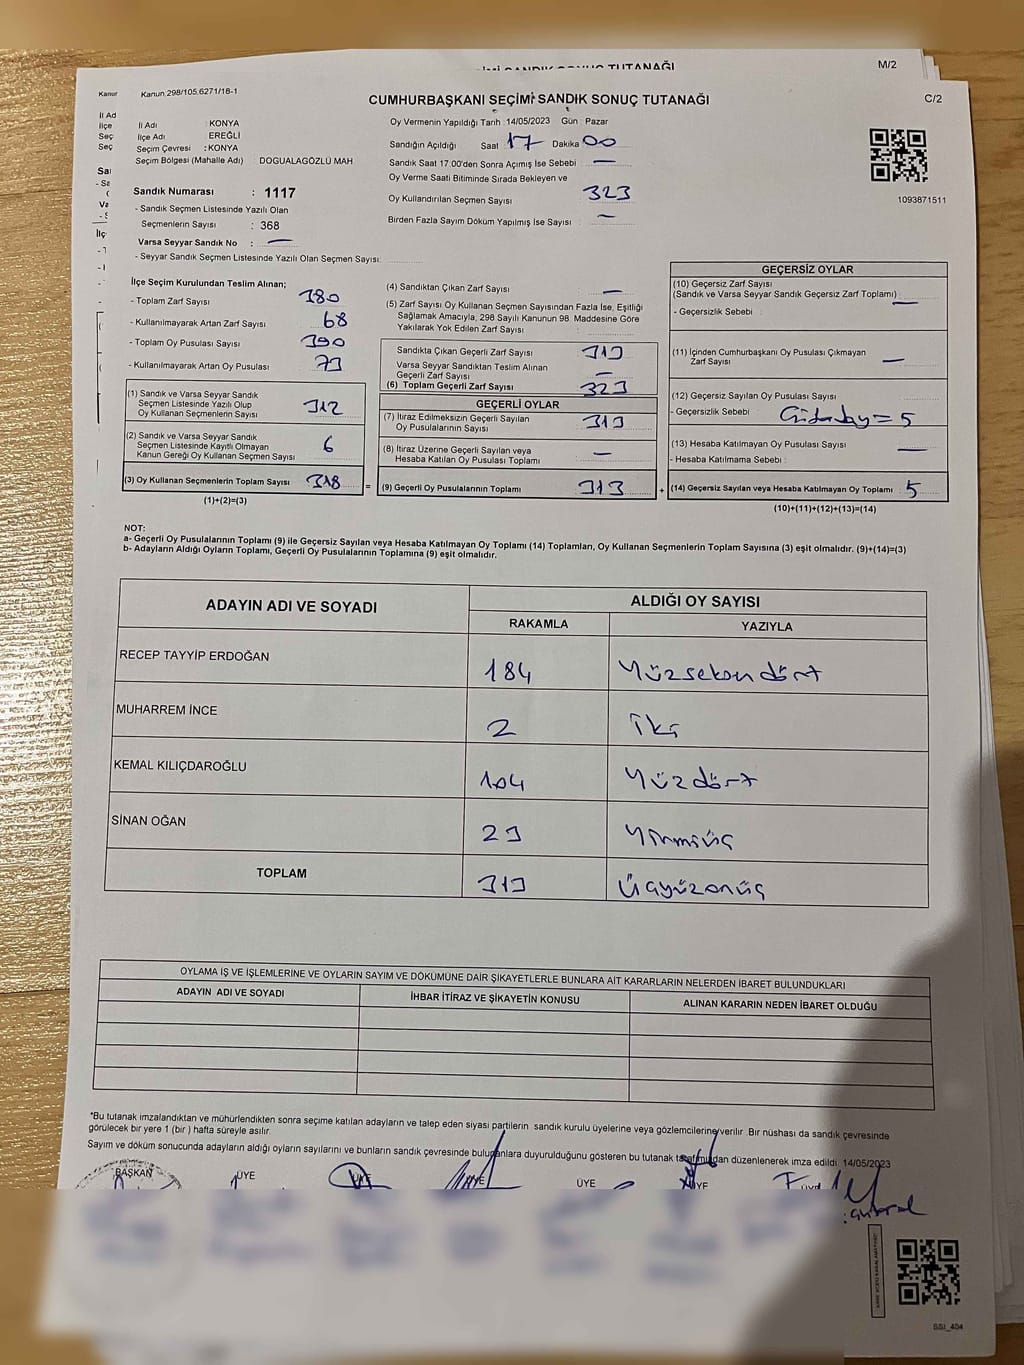 SANDIK SONUÇ TUTANAĞI
M/2
Kanun
Kanun.298/105.6271/18-1
CUMHURBAŞKANI SEÇİMİ SANDIK SONUÇ TUTANAĞI
C/2
İl Adı : KONYA
İlçe Adı : EREĞLİ
Seçim Çevresi : KONYA
Seçim Bölgesi (Mahalle Adı) DOGUALAGÖZLÜ MAH
Sandık Numarası : 1117
- Sandık Seçmen Listesinde Yazılı Olan
Seçmenlerin Sayısı : 368
Varsa Seyyar Sandık No : —
- Seyyar Sandık Seçmen Listesinde Yazılı Olan Seçmen Sayısı:
Oy Vermenin Yapıldığı Tarih :14/05/2023 Gün : Pazar
Sandığın Açıldığı Saat 17 Dakika 00
Sandık Saat 17.00'den Sonra Açımış İse Sebebi —
Oy Verme Saati Bitiminde Sırada Bekleyen ve
Oy Kullandırılan Seçmen Sayısı 323
Birden Fazla Sayım Döküm Yapılmış İse Sayısı : —
1093871511
İlçe Seçim Kurulundan Teslim Alınan;
- Toplam Zarf Sayısı 380
- Kullanılmayarak Artan Zarf Sayısı 68
- Toplam Oy Pusulası Sayısı 390
- Kullanılmayarak Artan Oy Pusulası 73
(1) Sandık ve Varsa Seyyar Sandık
Seçmen Listesinde Yazılı Olup
Oy Kullanan Seçmenlerin Sayısı 312
(2) Sandık ve Varsa Seyyar Sandık
Seçmen Listesinde Kayıtlı Olmayan
Kanun Gereği Oy Kullanan Seçmen Sayısı 6
(3) Oy Kullanan Seçmenlerin Toplam Sayısı 318
(1)+(2)=(3)
=
(4) Sandıktan Çıkan Zarf Sayısı —
(5) Zarf Sayısı Oy Kullanan Seçmen Sayısından Fazla İse, Eşitliği
Sağlamak Amacıyla, 298 Sayılı Kanunun 98. Maddesine Göre
Yakılarak Yok Edilen Zarf Sayısı :
Sandıkta Çıkan Geçerli Zarf Sayısı 313
Varsa Seyyar Sandıktan Teslim Alınan
Geçerli Zarf Sayısı —
(6) Toplam Geçerli Zarf Sayısı 323
GEÇERLİ OYLAR
(7) İtiraz Edilmeksizin Geçerli Sayılan
Oy Pusulalarının Sayısı 313
(8) İtiraz Üzerine Geçerli Sayılan veya
Hesaba Katılan Oy Pusulası Toplamı —
(9) Geçerli Oy Pusulalarının Toplamı 313
+
GEÇERSİZ OYLAR
(10) Geçersiz Zarf Sayısı
(Sandık ve Varsa Seyyar Sandık Geçersiz Zarf Toplamı) —
- Geçersizlik Sebebi :
(11) İçinden Cumhurbaşkanı Oy Pusulası Çıkmayan
Zarf Sayısı —
(12) Geçersiz Sayılan Oy Pusulası Sayısı
- Geçersizlik Sebebi = 5
(13) Hesaba Katılmayan Oy Pusulası Sayısı —
- Hesaba Katılmama Sebebi :
(14) Geçersiz Sayılan veya Hesaba Katılmayan Oy Toplamı 5
(10)+(11)+(12)+(13)=(14)
NOT:
a- Geçerli Oy Pusulalarının Toplamı (9) ile Geçersiz Sayılan veya Hesaba Katılmayan Oy Toplamı (14) Toplamları, Oy Kullanan Seçmenlerin Toplam Sayısına (3) eşit olmalıdır. (9)+(14)=(3)
b- Adayların Aldığı Oyların Toplamı, Geçerli Oy Pusulalarının Toplamına (9) eşit olmalıdır.
ADAYIN ADI VE SOYADI
ALDIĞI OY SAYISI
RAKAMLA YAZIYLA
RECEP TAYYİP ERDOĞAN 184 Yüzseksendört
MUHARREM İNCE 2 İki
KEMAL KILIÇDAROĞLU 104 Yüzdört
SİNAN OĞAN 23 Yirmiüç
TOPLAM 313 Üçyüzonüç
OYLAMA İŞ VE İŞLEMLERİNE VE OYLARIN SAYIM VE DÖKÜMÜNE DAİR ŞİKAYETLERLE BUNLARA AİT KARARLARIN NELERDEN İBARET BULUNDUKLARI
ADAYIN ADI VE SOYADI İHBAR İTİRAZ VE ŞİKAYETİN KONUSU ALINAN KARARIN NEDEN İBARET OLDUĞU
*Bu tutanak imzalandıktan ve mühürlendikten sonra seçime katılan adayların ve talep eden siyasi partilerin sandık kurulu üyelerine veya gözlemcilerine verilir. Bir nüshası da sandık çevresinde
görülecek bir yere 1 (bir ) hafta süreyle asılır.
Sayım ve döküm sonucunda adayların aldığı oyların sayılarını ve bunların sandık çevresinde bulunanlara duyurulduğunu gösteren bu tutanak tarafımızdan düzenlenerek imza edildi. 14/05/2023
BAŞKAN ÜYE ÜYE ÜYE ÜYE ÜYE ÜYE
SSI_404